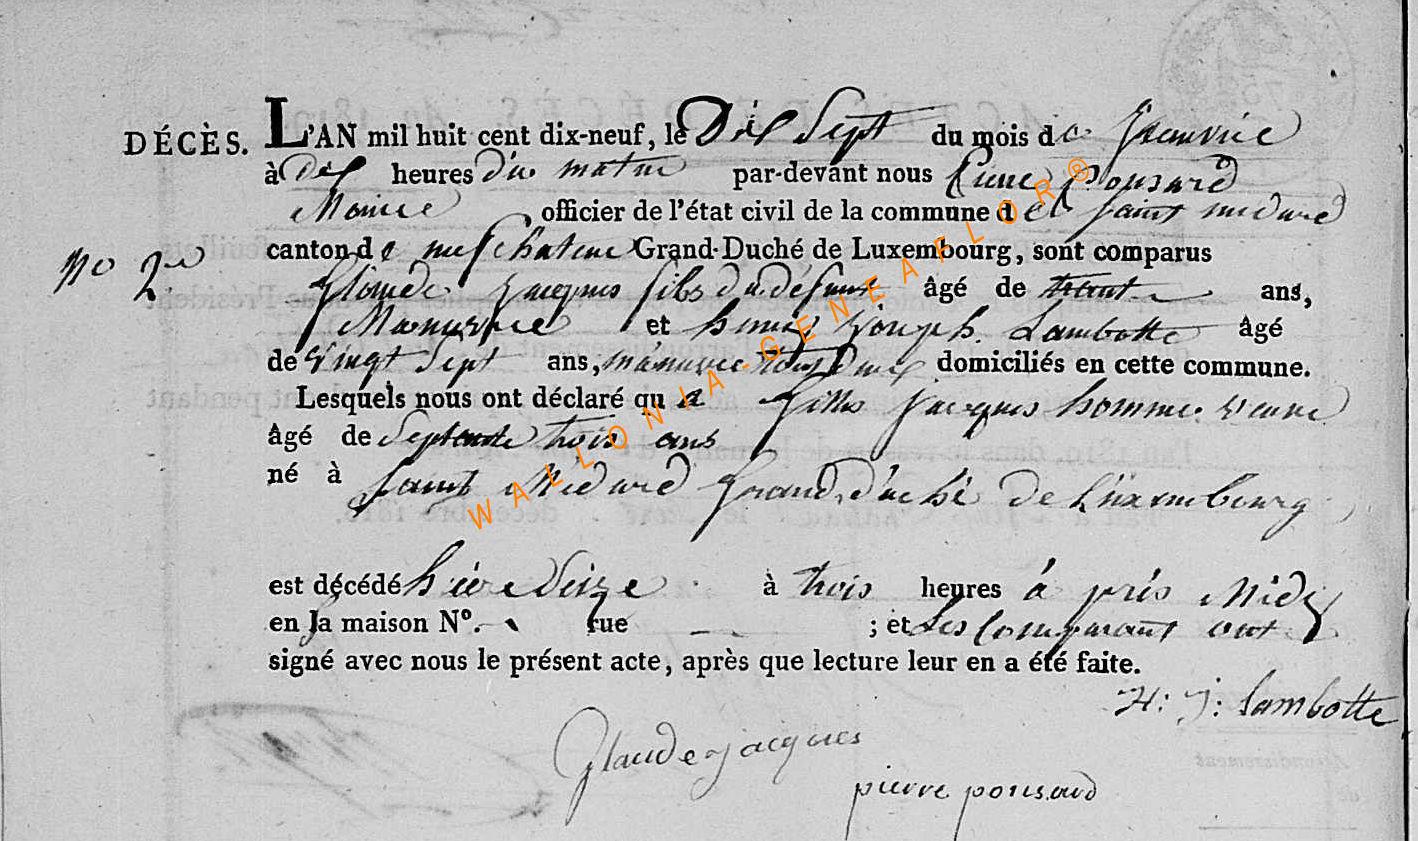 DÉCÈS. L'AN mil huit cent dix-neuf, le Dix Sept du mois de Janvier
à Dix heures du matin par-devant nous Pierre Ponsard
Maire officier de l'état civil de la commune de Saint medard
No 2 canton de neufchateau Grand-Duché de Luxembourg, sont comparus
Glaude jacques fils du défunt âgé de trente ans,
Manuvrie et henry Joseph Lambotte âgé
de vingt Sept ans, manuvrie tous Deux domiciliés en cette commune.
Lesquels nous ont déclaré que Gilles jacques homme veuve
âgé de Septente trois ans
né à Saint Médard Grand duché de Luxembourg
est décédé hier Seize à trois heures à près Midy
en la maison N°. rue ; et Les Comparant ont
signé avec nous le présent acte, après que lecture leur en a été faite.
H: J: Lambotte
Glaude jacques
pierre ponsard
WALLONIA-GENEAFLOR®